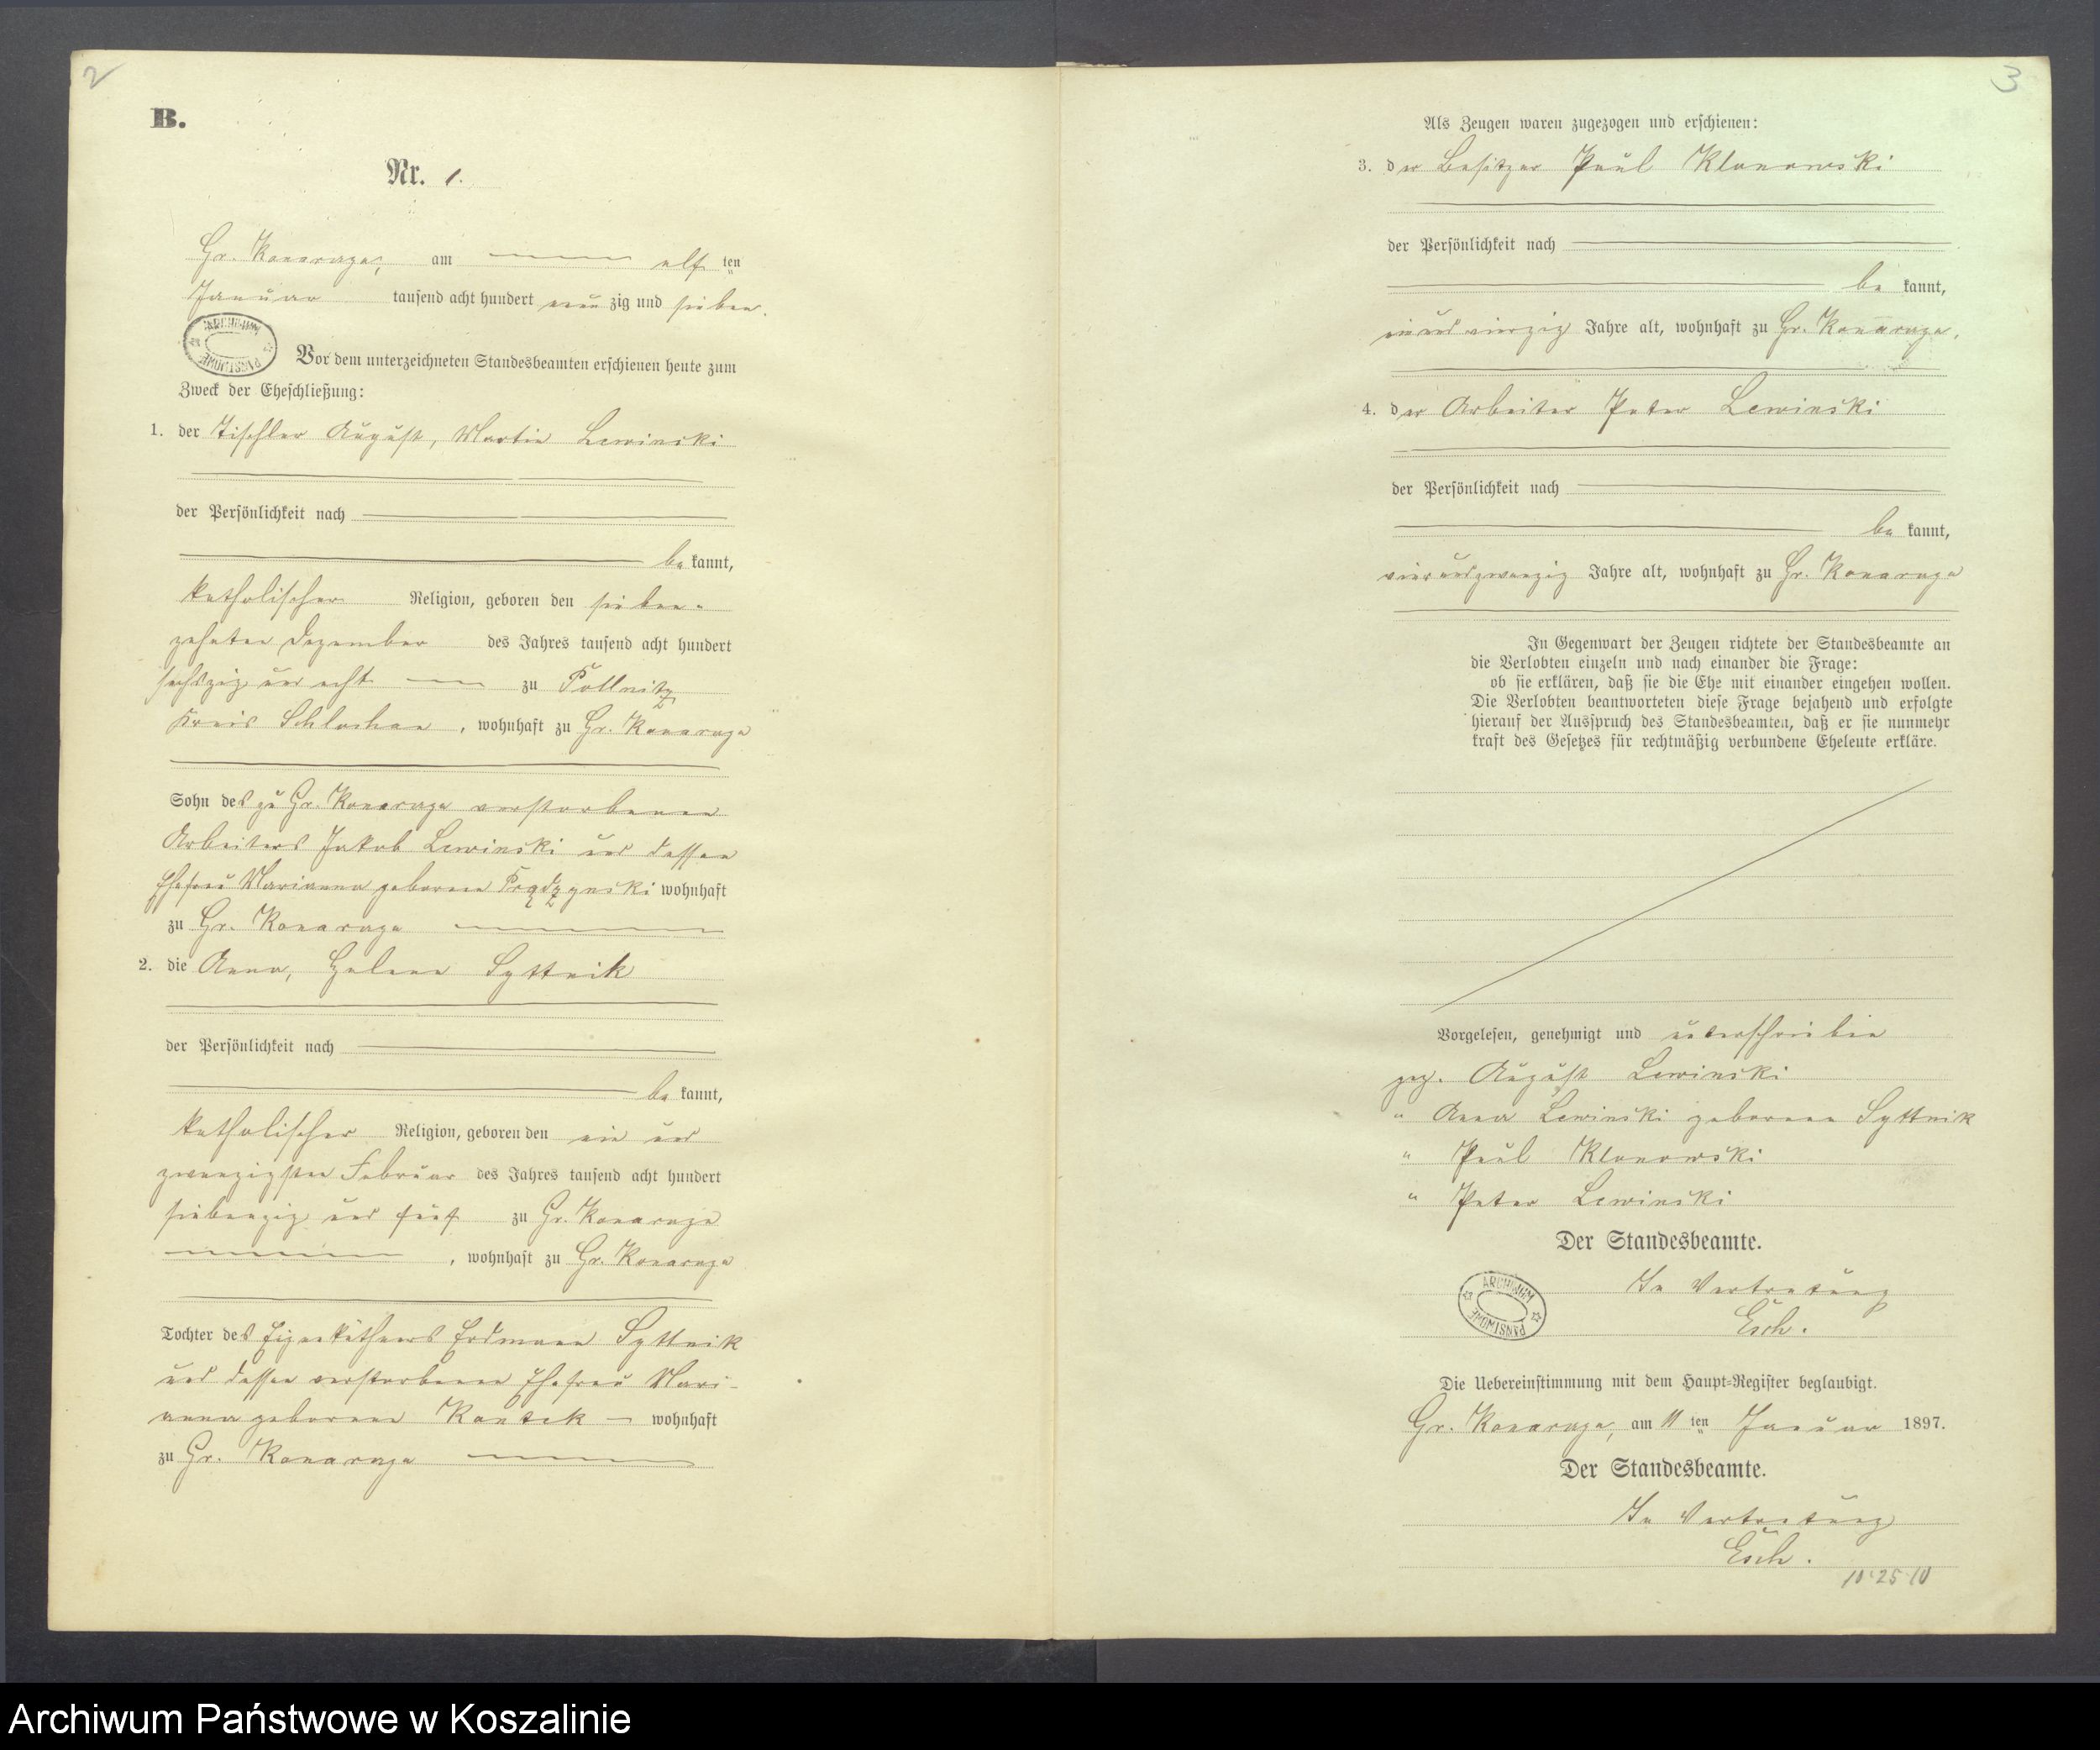 2
B.
Nr. 1.
Gr. Konarzyn, am elf ten
Januar tausend acht hundert neun zig und sieben.
ARCHIWUM
PAŃSTWOWE
Vor dem unterzeichneten Standesbeamten erschienen heute zum
Zweck der Eheschließung:
1. der Tischler August, Martin Lewinski
der Persönlichkeit nach
be kannt,
katholischer Religion, geboren den sieben-
zehnten Dezember des Jahres tausend acht hundert
sechszig und acht zu Pollnitz
Kreis Schlochau, wohnhaft zu Gr. Konarzyn
Sohn des zu Gr. Konarzyn verstorbenen
Arbeiters Jakob Lewinski und dessen
Ehefrau Marianna geborene Prądzynski wohnhaft
zu Gr. Konarzyn
2. die Anna, Helene Syttnik
der Persönlichkeit nach
be kannt,
katholischer Religion, geboren den ein und
zwanzigsten Februar des Jahres tausend acht hundert
siebenzig und fünf zu Gr. Konarzyn
, wohnhaft zu Gr. Konarzyn
Tochter des Eigenkäthners Erdmann Syttnik
und dessen verstorbenen Ehefrau Mari-
anna geborene Kontek — wohnhaft
zu Gr. Konarzyn
3
Als Zeugen waren zugezogen und erschienen:
3. der Besitzer Paul Klonowski
der Persönlichkeit nach
be kannt,
einundvierzig Jahre alt, wohnhaft zu Gr. Konarzyn,
4. der Arbeiter Peter Lewinski
der Persönlichkeit nach
be kannt,
vierundzwanzig Jahre alt, wohnhaft zu Gr. Konarzyn
In Gegenwart der Zeugen richtete der Standesbeamte an
die Verlobten einzeln und nach einander die Frage:
ob sie erklären, daß sie die Ehe mit einander eingehen wollen.
Die Verlobten beantworteten diese Frage bejahend und erfolgte
hierauf der Ausspruch des Standesbeamten, daß er sie nunmehr
kraft des Gesetzes für rechtmäßig verbundene Eheleute erkläre.
Vorgelesen, genehmigt und unterschrieben
gez. August Lewinski
" Anna Lewinski geborene Syttnik
" Paul Klonowski
" Peter Lewinski
Der Standesbeamte.
In Vertretung
Esch.
ARCHIWUM
PAŃSTWOWE
Die Uebereinstimmung mit dem Haupt-Register beglaubigt.
Gr. Konarzyn, am 11 ten Januar 1897.
Der Standesbeamte.
In Vertretung
Esch.
Archiwum Państwowe w Koszalinie